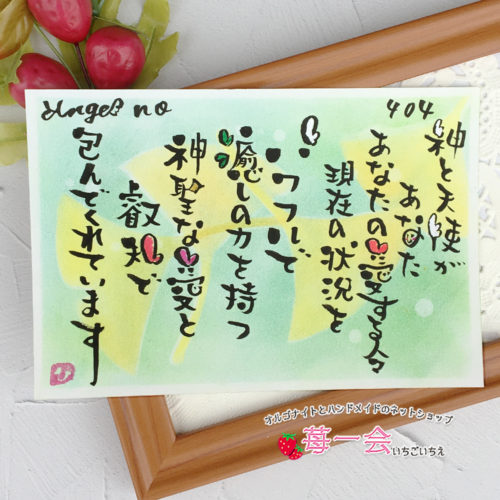 Angel no 404
神と天使が
あなた
あなたの愛する人々
現在の状況を
パワフルで
癒しの力を持つ
神聖な愛と
叡知で
包んでくれています
ひ
オルゴナイトとハンドメイドのネットショップ
苺一会いちごいちえ